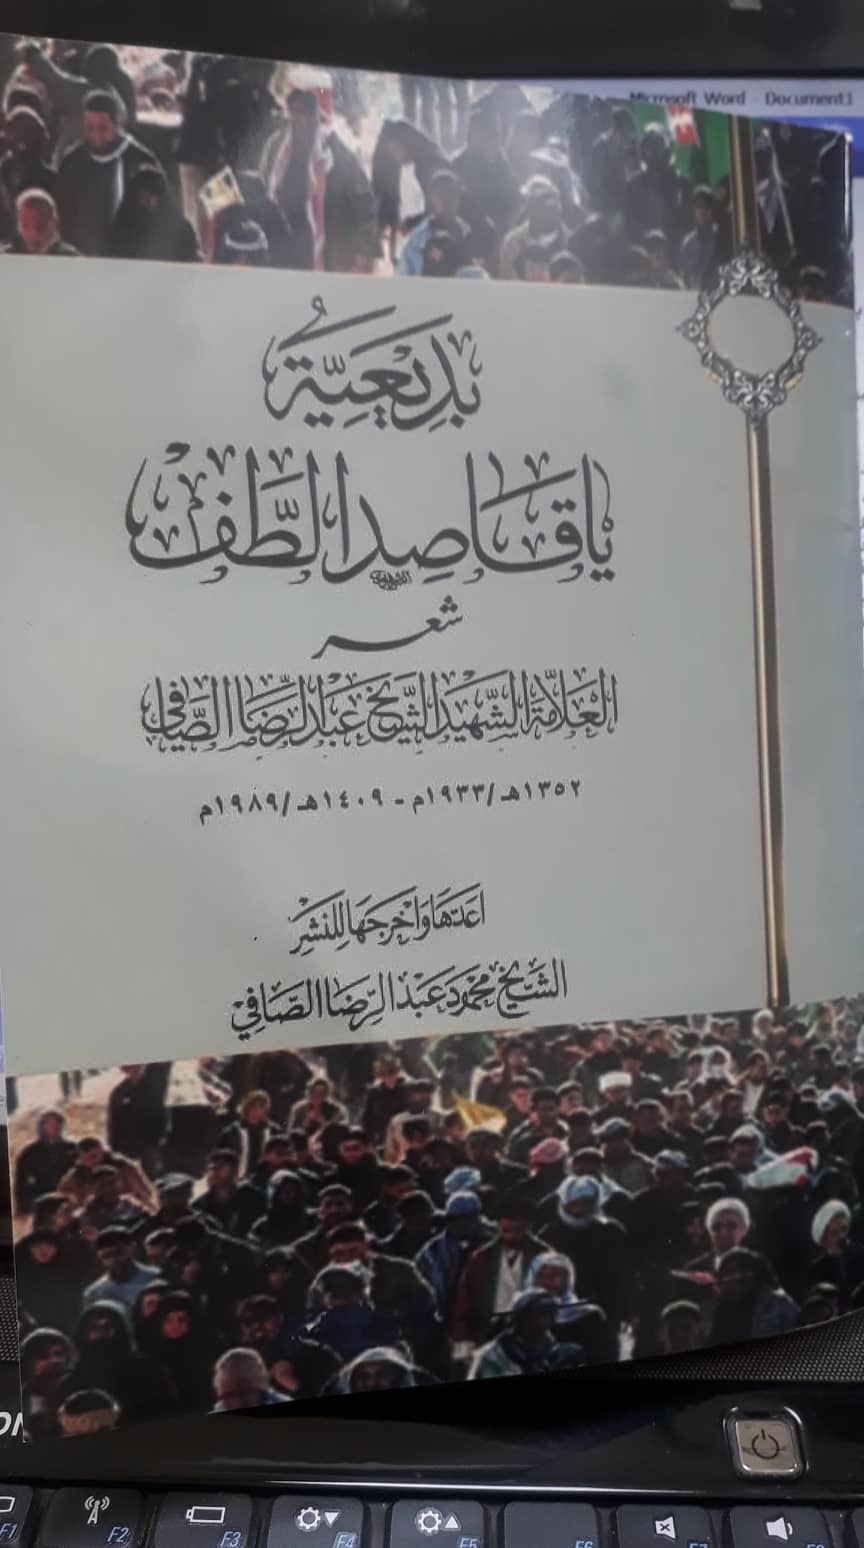 Microsoft Word - Document1
بَدِيْعِيَّةُ
يَا قَاصِدَ الطَّفِّ
شعر
العَلاّمَة الشَّهِيْد الشَّيْخ عَبْد الرِّضَا الصَّافِي
١٣٥٢هـ/١٩٣٣م - ١٤٠٩هـ/١٩٨٩م
اعَدّهَا وَاخرجَهَا لِلنَشْرِ
الشَّيْخ مُحَمَّود عَبْد الرِّضَا الصَّافِي
F1
F2
F3
F4
F5
F6
F7